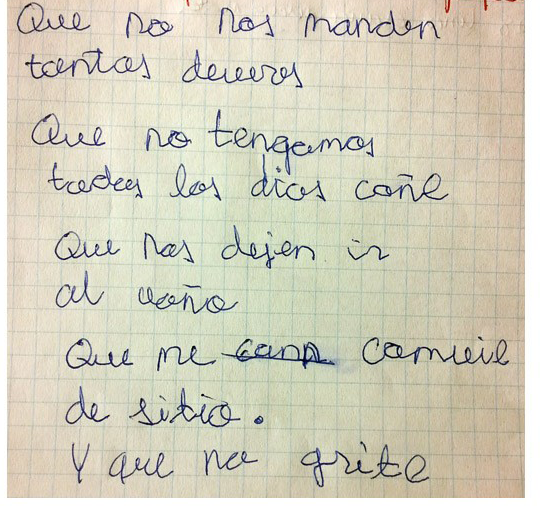 Que no nos manden
tantos deveres
Que no tengamos
todos los dias coñe
Que nos dejen ir
al vaño
Que me cann camvie
de sitio.
Y que no grite